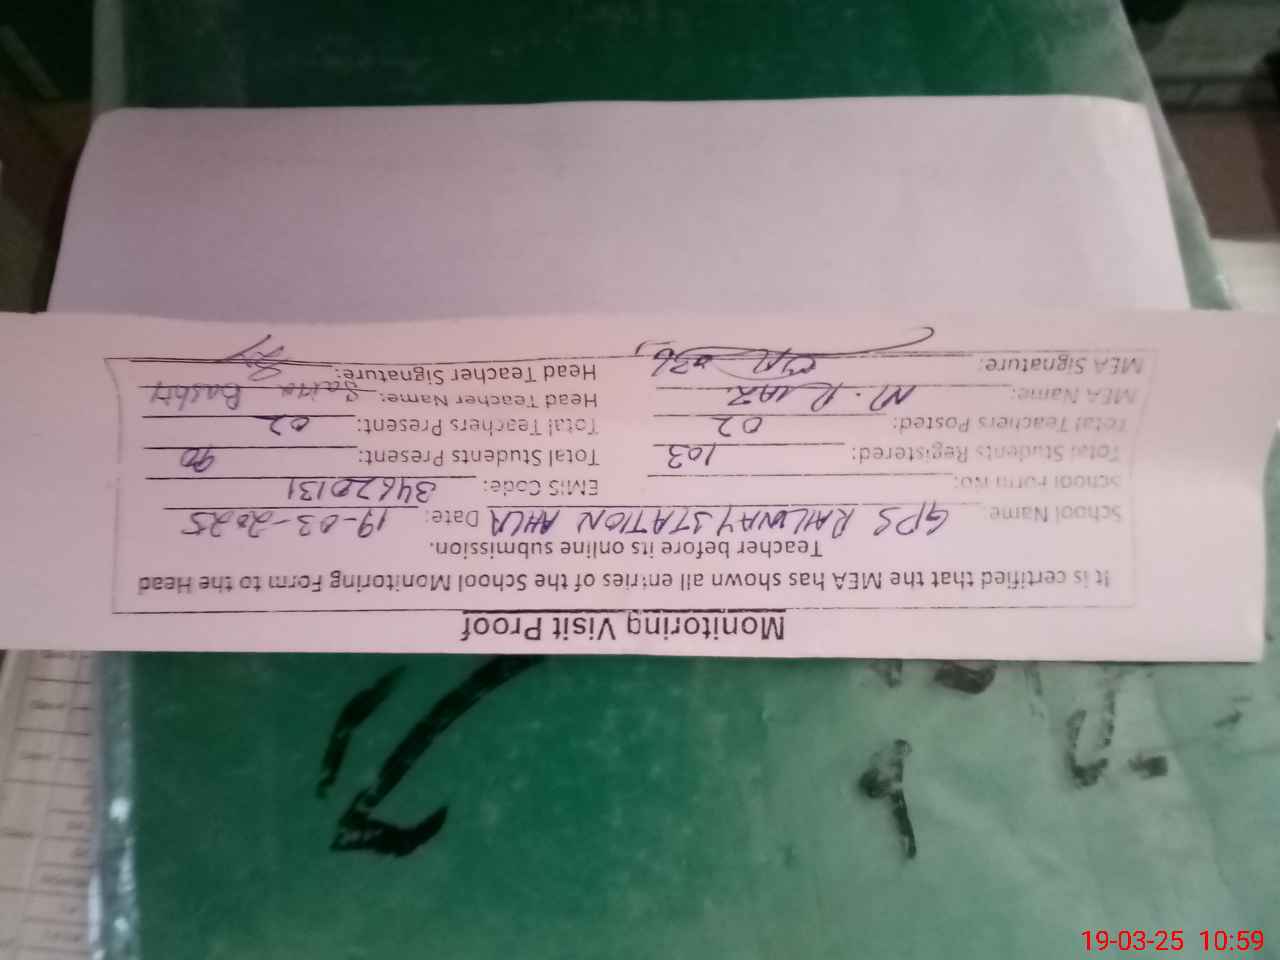 Monitoring Visit Proof
It is certified that the MEA has shown all entries of the School Monitoring Form to the Head
Teacher before its online submission.
School Name: GPS RAILWAY STATION AHLA Date: 19-03-2025
School Form No: EMIS Code: 34620131
Total Students Registered: 103 Total Students Present: 90
Total Teachers Posted: 02 Total Teachers Present: 02
MEA Name: M. RIAZ Head Teacher Name: Saima Bashir
MEA Signature: Head Teacher Signature:
19-03-25 10:59